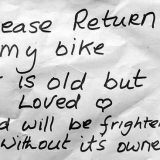 ease Return
my bike
is old but
Loved ♡
d will be frighten
without its owne